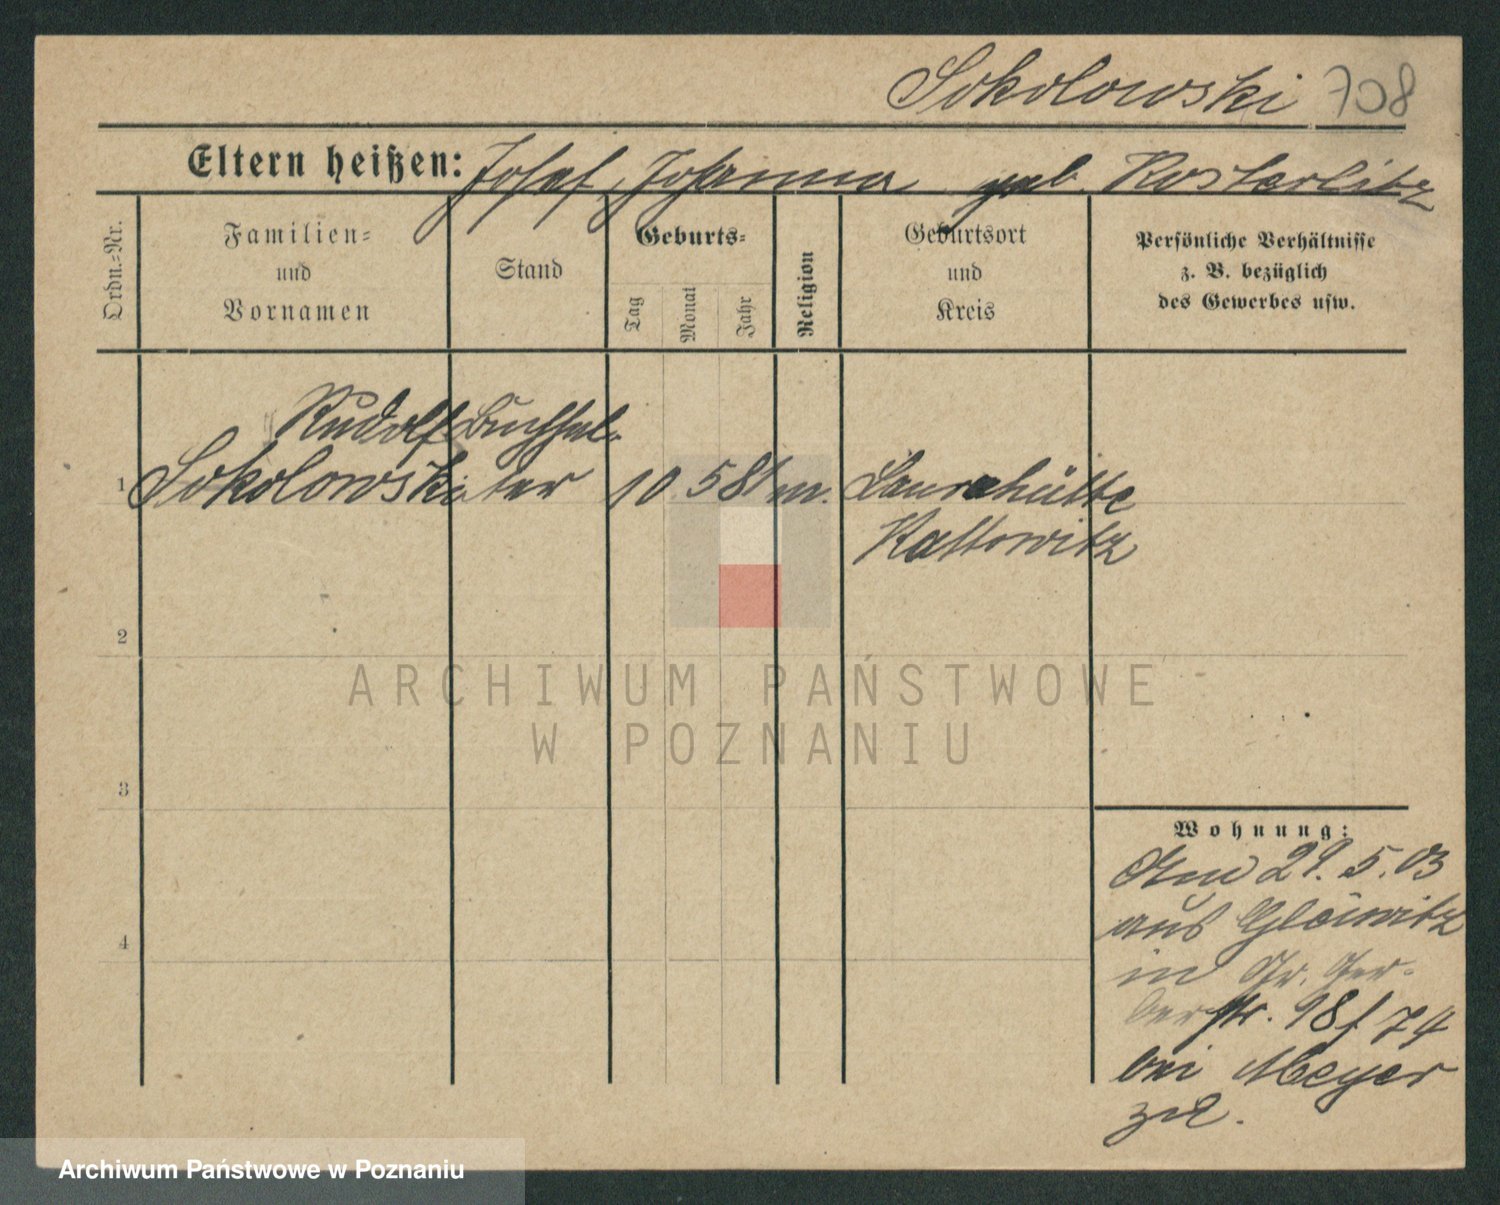 Sokolowski 708
Eltern heißen: Josef, Johanna geb. Kosterlitz
Ordn.-Nr.
Familien-
und
Vornamen
Stand
Geburts-
Tag
Monat
Jahr
Religion
Geburtsort
und
Kreis
Persönliche Verhältnisse
z. B. bezüglich
des Gewerbes usw.
Rudolf Buchhal-
1 Sokolowski ter 10 5 81 m. Laurahütte
Kattowitz
2
3
4
Wohnung:
Am 29. 5. 03
aus Gleiwitz
in Gr. Ger-
berstr. 18
bei Meyer
ARCHIWUM PAŃSTWOWE
W POZNANIU
Archiwum Państwowe w Poznaniu